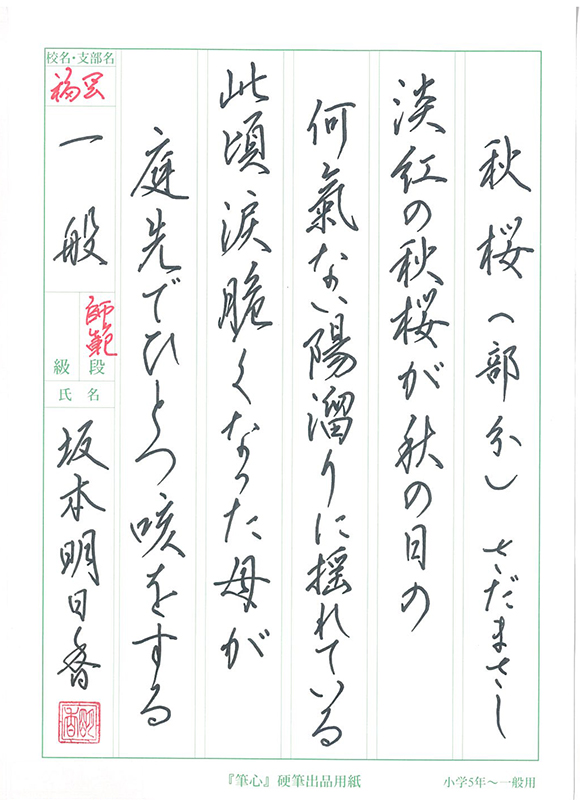 秋桜（部分）　さだまさし
淡紅の秋桜が秋の日の
何氣ない陽溜りに揺れている
此頃涙脆くなった母が
庭先でひとつ咳をする
校名・支部名
福岡
一般
師範
段
級
氏名
坂本明日香
『筆心』硬筆出品用紙
小学5年〜一般用